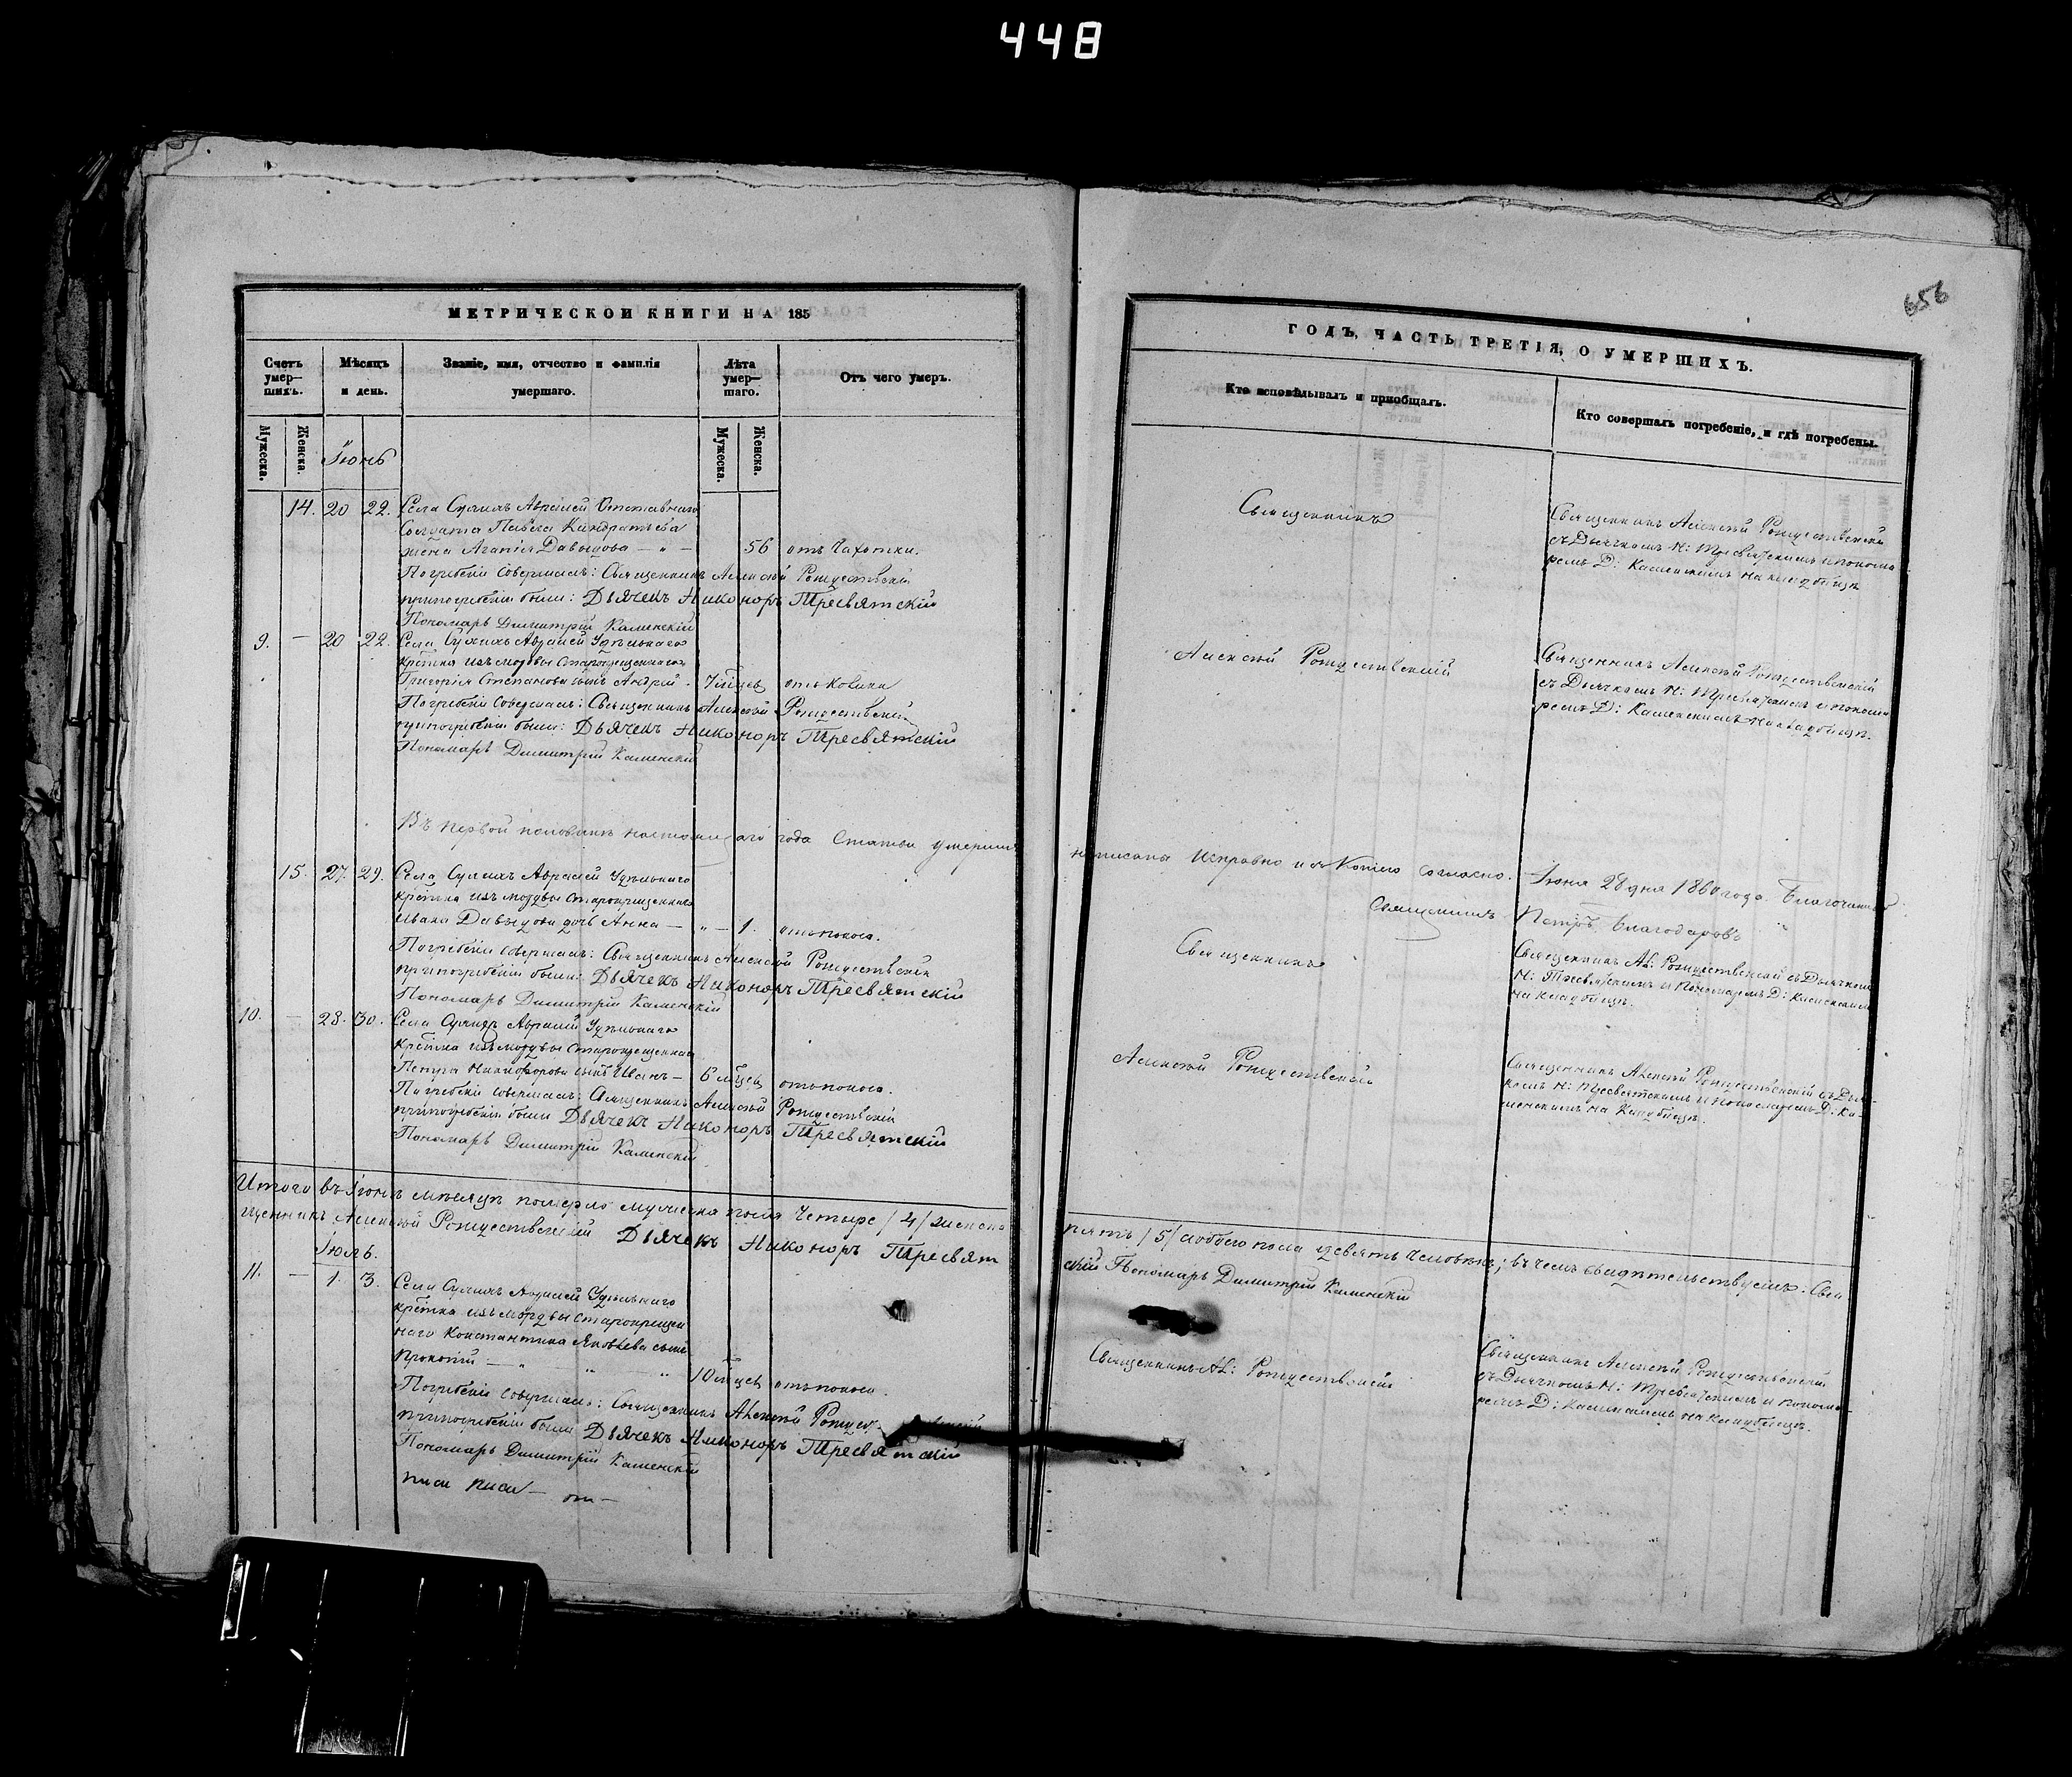 448
656
МЕТРИЧЕСКОЙ КНИГИ НА 185
Счетъ умер—шихъ.
Мѣсяцъ и день.
Званіе, имя, отчество и фамилія умершаго.
Лѣта умер—шаго.
Отъ чего умеръ.
Мужеска.
Женска.
Мужеска.
Женска.
Іюнь
14. 20 22. Села Аврамей Отставнаго
Солдата Павла Кандратьева
жена Агапія Давыдова — „ — 56 отъ Чахотки.
Погребеніе совершалъ: Священникъ Алексѣй Рождественскій
при погребеніи были: Дьячекъ Никоноръ Тресвятскій
Пономарь Димитрій Каменскій
9. — 20 22. Села Аврамей Удѣльнаго
крестьянина изъ мордвы старокрещеннаго
Григорія Степанова сынъ Андрей. 7 мѣсцев
Погребеніе совершалъ: Священникъ Алексѣй Рождественскій
при погребеніи были: Дьячекъ Никоноръ Тресвятскій
Пономарь Димитрій Каменскій
Въ первой половинѣ настоящаго года Статьи умершихъ
15. 27. 29. Села Аврамей Удѣльнаго
крестьянина изъ мордвы старокрещеннаго
Ивана Давыдова дочь Анна — „ — 1. отъ поноса.
Погребеніе совершалъ: Священникъ Алексѣй Рождественскій
при погребеніи были: Дьячекъ Никоноръ Тресвятскій
Пономарь Димитрій Каменскій
10. — 28. 30. Села Аврамей Удѣльнаго
крестьянина изъ мордвы старокрещеннаго
Петра Никифорова сынъ Иванъ — 6 мѣсцев отъ поноса.
Погребеніе совершалъ: Священникъ Алексѣй Рождественскій
при погребеніи были Дьячекъ Никоноръ Тресвятскій
Пономарь Димитрій Каменскій
Итого въ Іюнѣ мѣсяцѣ померло мужеска пола Четыре /4/ женска
щенникъ Алексѣй Рождественскій Дьячекъ Никоноръ Тресвят
Іюль.
11. — 1. 3. Села Аврамей Удѣльнаго
крестьянина изъ мордвы старокрещен
наго Константина Яковлева сынъ
Прокопій — „ „ „ 10 мѣсцев отъ поноса.
Погребеніе совершалъ: Священникъ Алексѣй
при погребеніи были Дьячекъ Никоноръ Тресвятскій
Пономарь Димитрій Каменскій
ГОДЪ, ЧАСТЬ ТРЕТІЯ, О УМЕРШИХЪ.
Кто исповѣдывалъ и пріобщалъ.
Кто совершалъ погребеніе, и гдѣ погребены.
Священникъ
Священникъ Алексѣй Рождественскій
съ Дьячкомъ Н: Тресвятскимъ и понома
ремъ Д: Каменскимъ на кладбищѣ
Алексѣй Рождественскій
Священникъ Алексѣй Рождественскій
съ Дьячкомъ Н: Тресвятскимъ и понома
ремъ Д: Каменскимъ на кладбищѣ.
написаны исправно и съ Копіею согласно. Іюня 28 дня 1860 года. Благочинный
Священникъ Петръ Благодаровъ
Священникъ
Священникъ Ал: Рождественскій съ Дьячкомъ
Н: Тресвятскимъ и Пономаремъ Д: Каменскимъ
на кладбищѣ.
Алексѣй Рождественскій
Священникъ Алексѣй Рождественскій съ Дьяч-
комъ Н: Тресвятскимъ и Пономаремъ Д: Ка-
менскимъ на Кладбищѣ.
пять /5/ и обоего пола девять человѣкъ; въ чемъ свидѣтельствуемъ. Свя
скій Пономарь Димитрій Каменскій
Священникъ Ал: Рождественскій
Священникъ Алексѣй Рождественскій
съ Дьячкомъ Н: Тресвятскимъ и понома-
ремъ Д: Каменскимъ на Кладбищѣ.